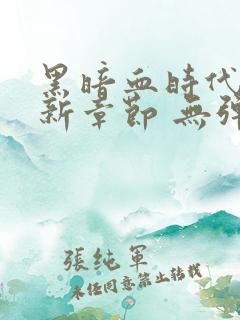 黑暗血時代
新章節 無彈
張純軍
未經同意禁止轉載